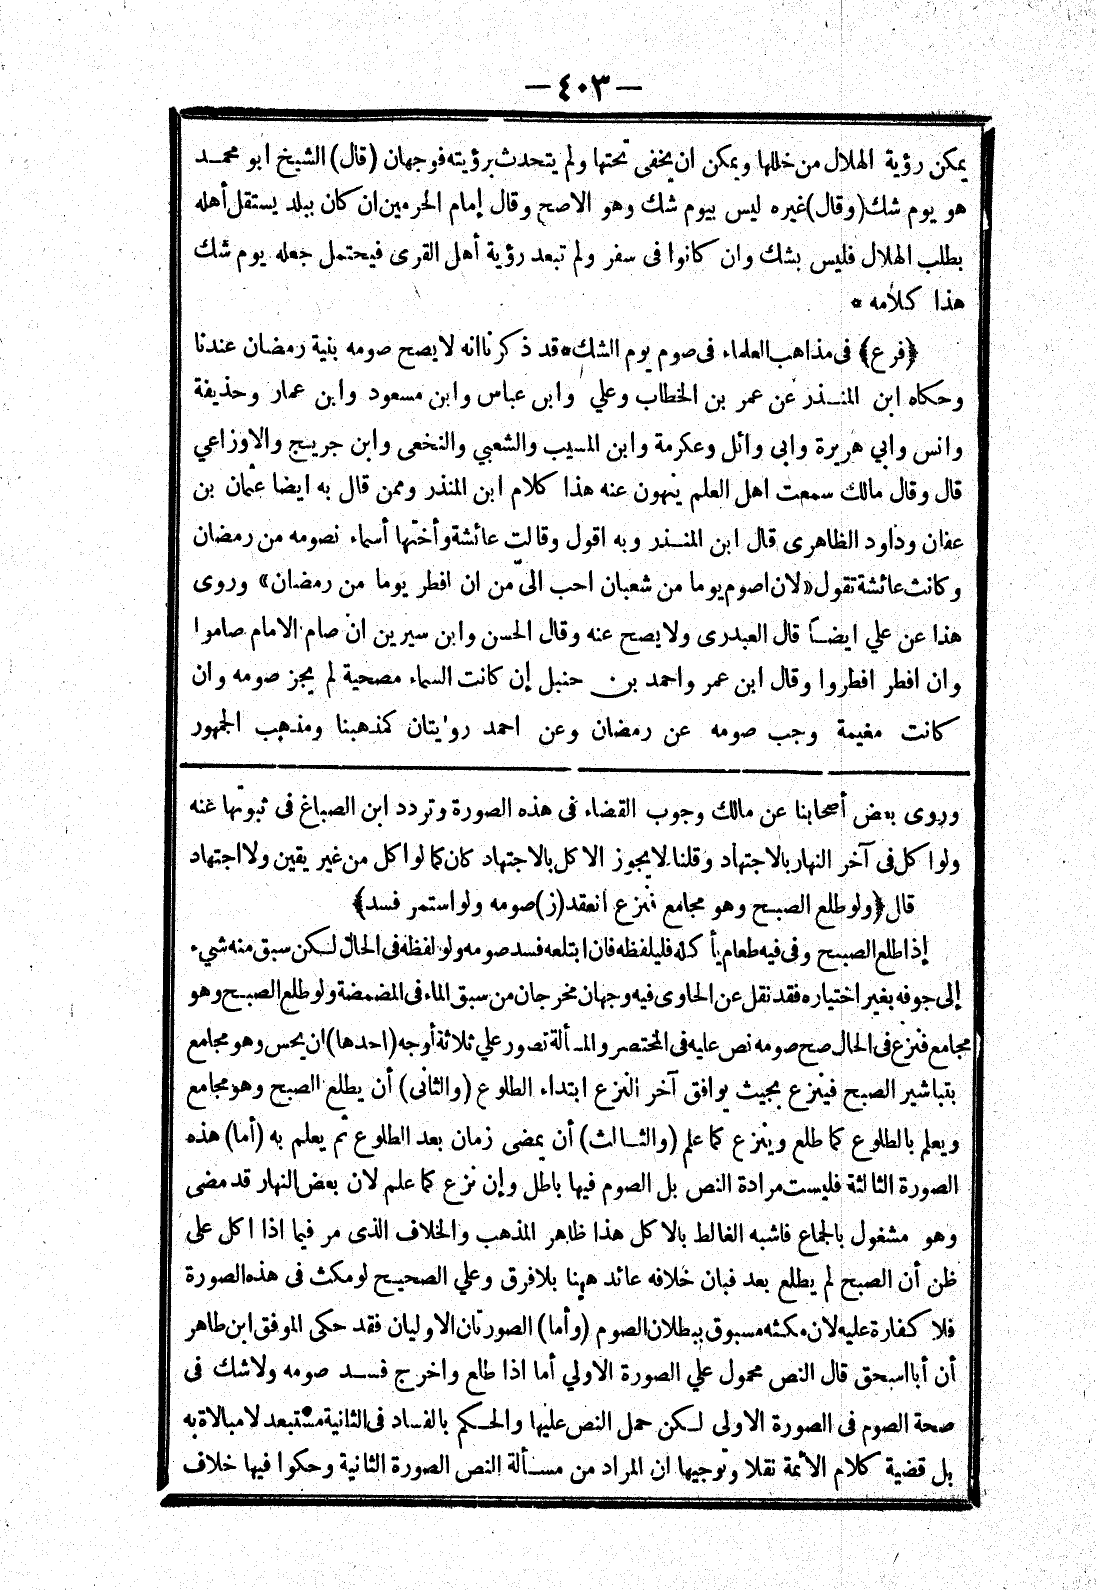 — ٤٠٣ —
يمكن رؤية الهلال من خللها ويمكن ان يخفى تحتها ولم يتحدث برؤيته فوجهان (قال) الشيخ ابو محمد
هو يوم شك (وقال) غيره ليس بيوم شك وهو الاصح وقال إمام الحرمين ان كان ببلد يستقل أهله
بطلب الهلال فليس بشك وان كانوا فى سفر ولم تبعد رؤية أهل القرى فيحتمل جعله يوم شك
هذا كلامه *
﴿فرع﴾ فى مذاهب العلماء فى صوم يوم الشك * قد ذكرنا انه لا يصح صومه بنية رمضان عندنا
وحكاه ابن المنذر عن عمر بن الخطاب وعلي وابن عباس وابن مسعود وابن عمار وحذيفة
وانس وابي هريرة وابى وائل وعكرمة وابن المسيب والشعبي والنخعى وابن جريج والاوزاعي
قال وقال مالك سمعت اهل العلم ينهون عنه هذا كلام ابن المنذر وممن قال به ايضا عثمان بن
عفان وداود الظاهرى قال ابن المنذر وبه اقول وقالت عائشة وأختها أسماء نصومه من رمضان
وكانت عائشة تقول «لان اصوم يوما من شعبان احب الىّ من ان افطر يوما من رمضان» وروى
هذا عن علي ايضاً قال العبدرى ولا يصح عنه وقال الحسن وابن سيرين ان صام الامام صاموا
وان افطر افطروا وقال ابن عمر واحمد بن حنبل إن كانت السماء مصحية لم يجز صومه وان
كانت مغيمة وجب صومه عن رمضان وعن احمد روايتان كمذهبنا ومذهب الجمهور
وروى بعض أصحابنا عن مالك وجوب القضاء فى هذه الصورة وتردد ابن الصباغ فى ثبوتها عنه
ولو اكل فى آخر النهار بالاجتهاد وقلنا لا يجوز الاكل بالاجتهاد كان كما لو اكل من غير يقين ولا اجتهاد
قال ﴿ولو طلع الصبح وهو مجامع فنزع انعقد (ز) صومه ولو استمر فسد﴾
إذا طلع الصبح وفى فيه طعام يأكله فليلفظه فان ابتلعه فسد صومه ولو لفظه فى الحال لكن سبق منه شيء
إلى جوفه بغير اختياره فقد نقل عن الحاوى فيه وجهان مخرجان من سبق الماء فى المضمضة ولو طلع الصبح وهو
مجامع فنزع فى الحال صح صومه نص عليه فى المختصر والمسألة تصور علي ثلاثة أوجه (احدها) ان يحس وهو مجامع
بتباشير الصبح فينزع بحيث يوافق آخر النزع ابتداء الطلوع (والثانى) أن يطلع الصبح وهو مجامع
ويعلم بالطلوع كما طلع وينزع كما علم (والثالث) أن يمضى زمان بعد الطلوع ثم يعلم به (أما) هذه
الصورة الثالثة فليست مرادة النص بل الصوم فيها باطل وإن نزع كما علم لان بعض النهار قد مضى
وهو مشغول بالجماع فاشبه الغالط بالاكل هذا ظاهر المذهب والخلاف الذى مر فيما اذا اكل على
ظن أن الصبح لم يطلع بعد فبان خلافه عائد ههنا بلا فرق وعلي الصحيح لو مكث فى هذه الصورة
فلا كفارة عليه لان مكثه مسبوق ببطلان الصوم (وأما) الصورتان الاوليان فقد حكى الموفق ابن طاهر
أن أبا اسحق قال النص محمول علي الصورة الاولي أما اذا طلع واخرج فسد صومه ولا شك فى
صحة الصوم فى الصورة الاولى لكن حمل النص عليها والحكم بالفساد فى الثانية مستبعد لا مبالاة به
بل قضية كلام الأئمة نقلا وتوجيها ان المراد من مسألة النص الصورة الثانية وحكوا فيها خلاف